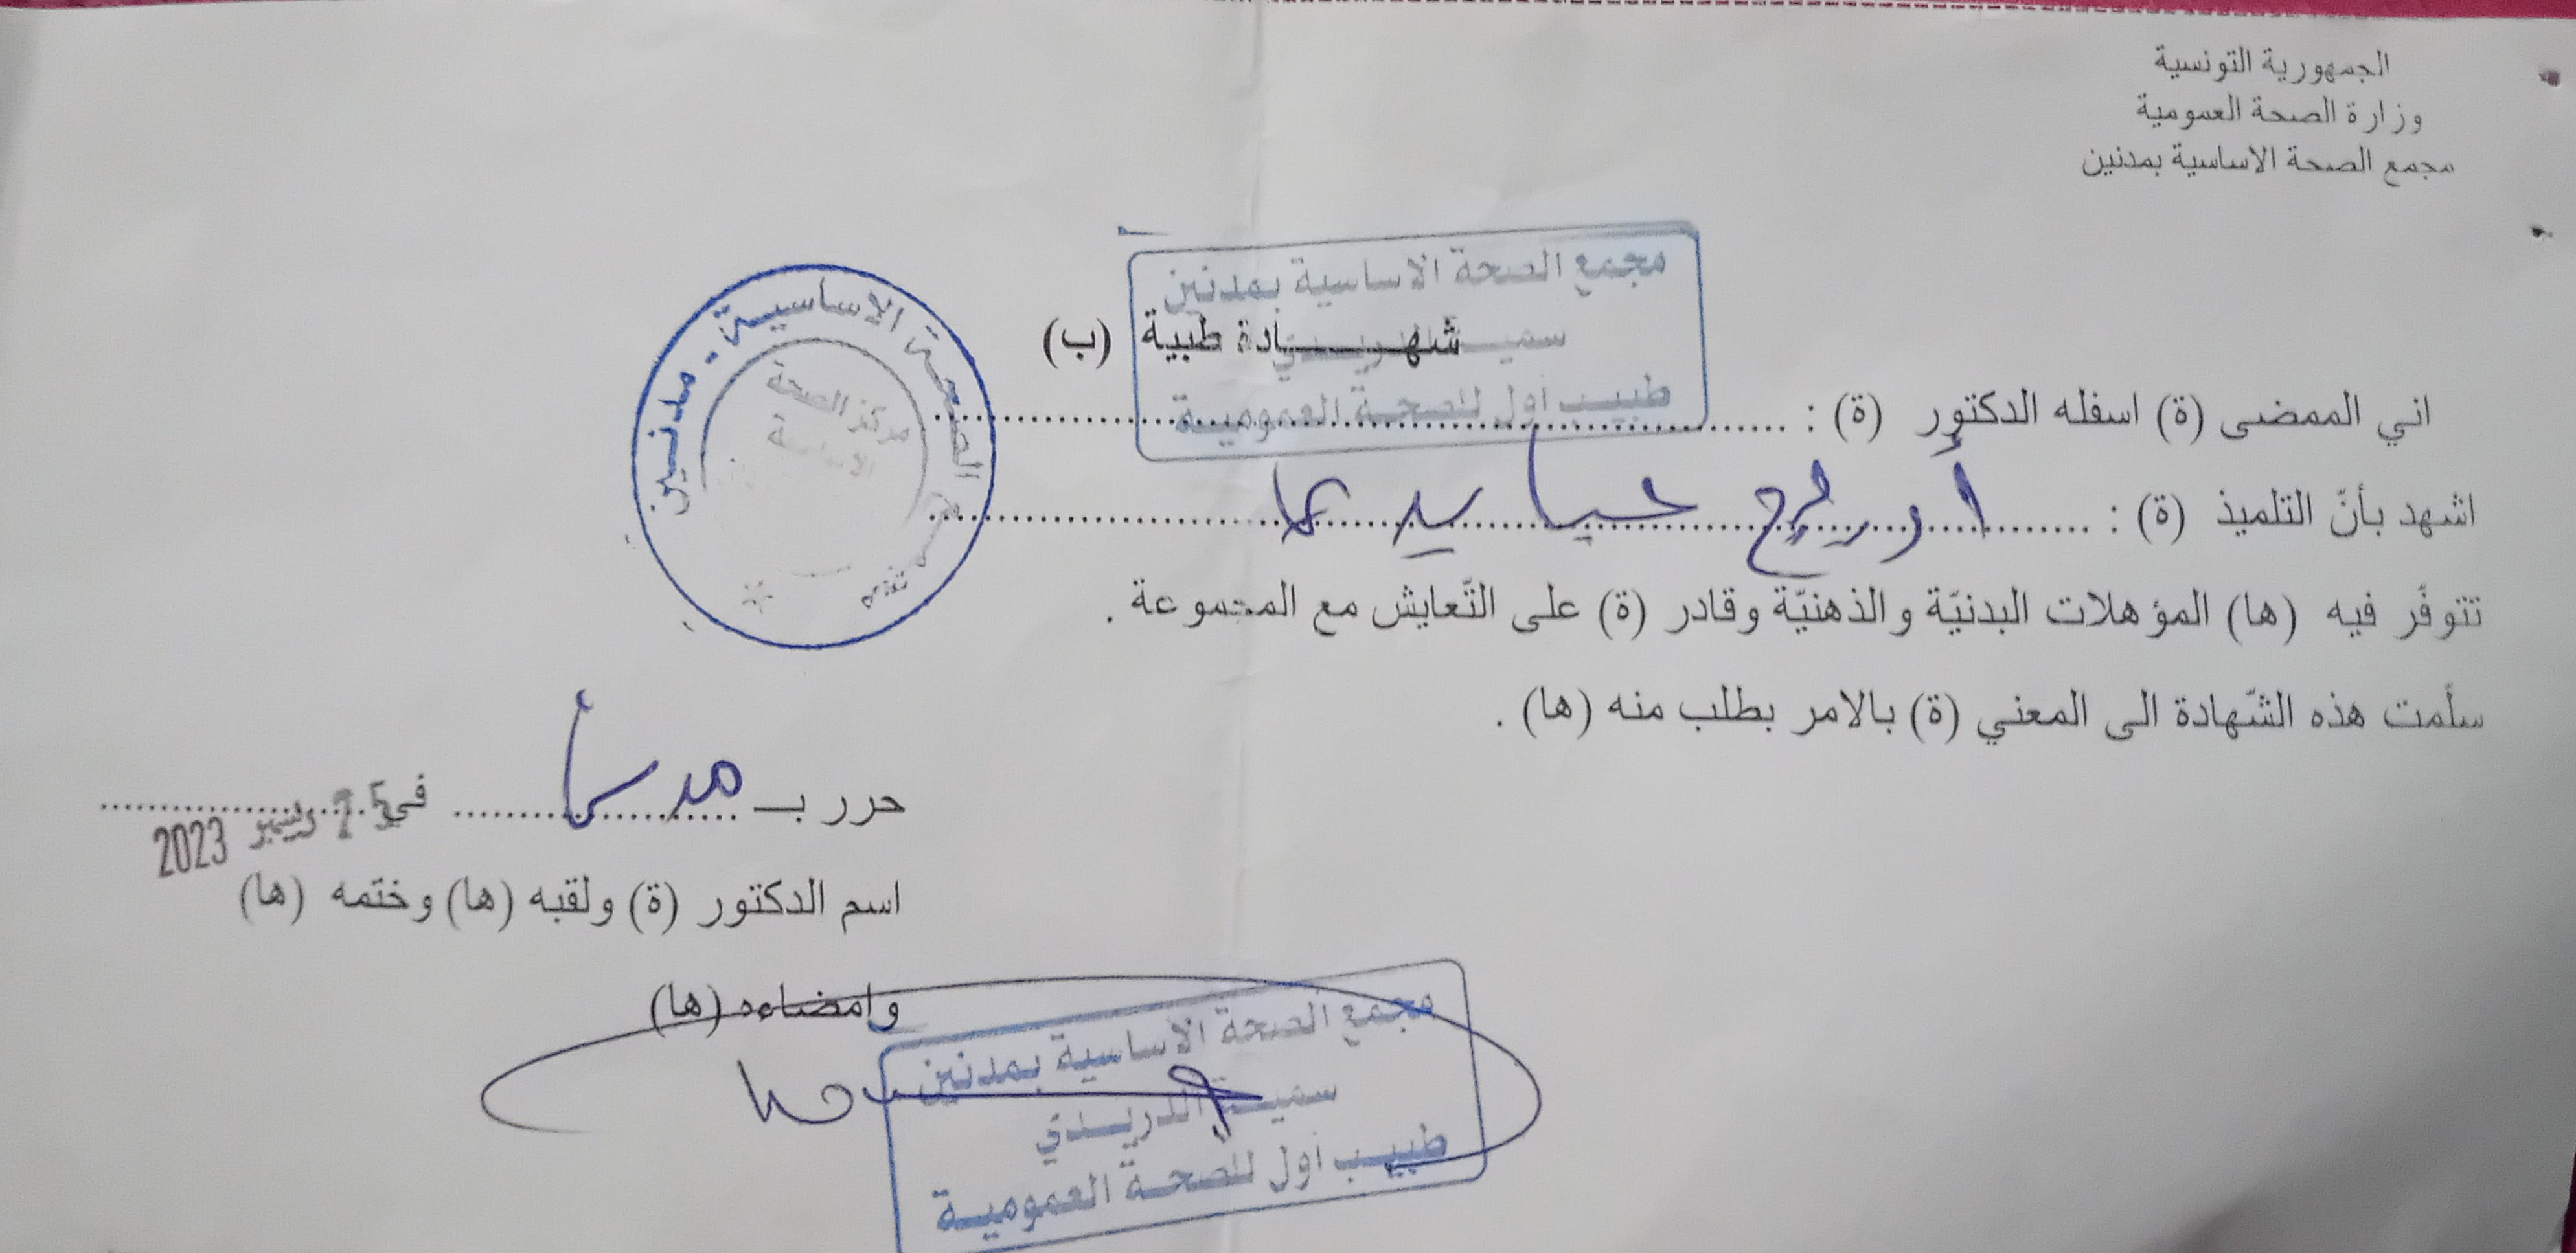 الجمهورية التونسية
وزارة الصحة العمومية
مجمع الصحة الاساسية بمدنين
مجمع الصحة الاساسية بمدنين
شهـــــــادة طبية (ب)
طبيب اول للصحة العمومية
الصحة الاساسية - مدنين
مركز الصحة
الاساسية
اني الممضى (ة) اسفله الدكتور (ة) :
اشهد بأنّ التلميذ (ة) : أريج
تتوفّر فيه (ها) المؤهلات البدنيّة والذهنيّة وقادر (ة) على التّعايش مع المجموعة .
سلّمت هذه الشّهادة الى المعني (ة) بالامر بطلب منه (ها) .
حرر بـ مدنين في 25 ديسمبر 2023
اسم الدكتور (ة) ولقبه (ها) وختمه (ها)
وامضاءه (ها)
مجمع الصحة الاساسية بمدنين
سميـة الدريـدي
طبيب اول للصحة العمومية